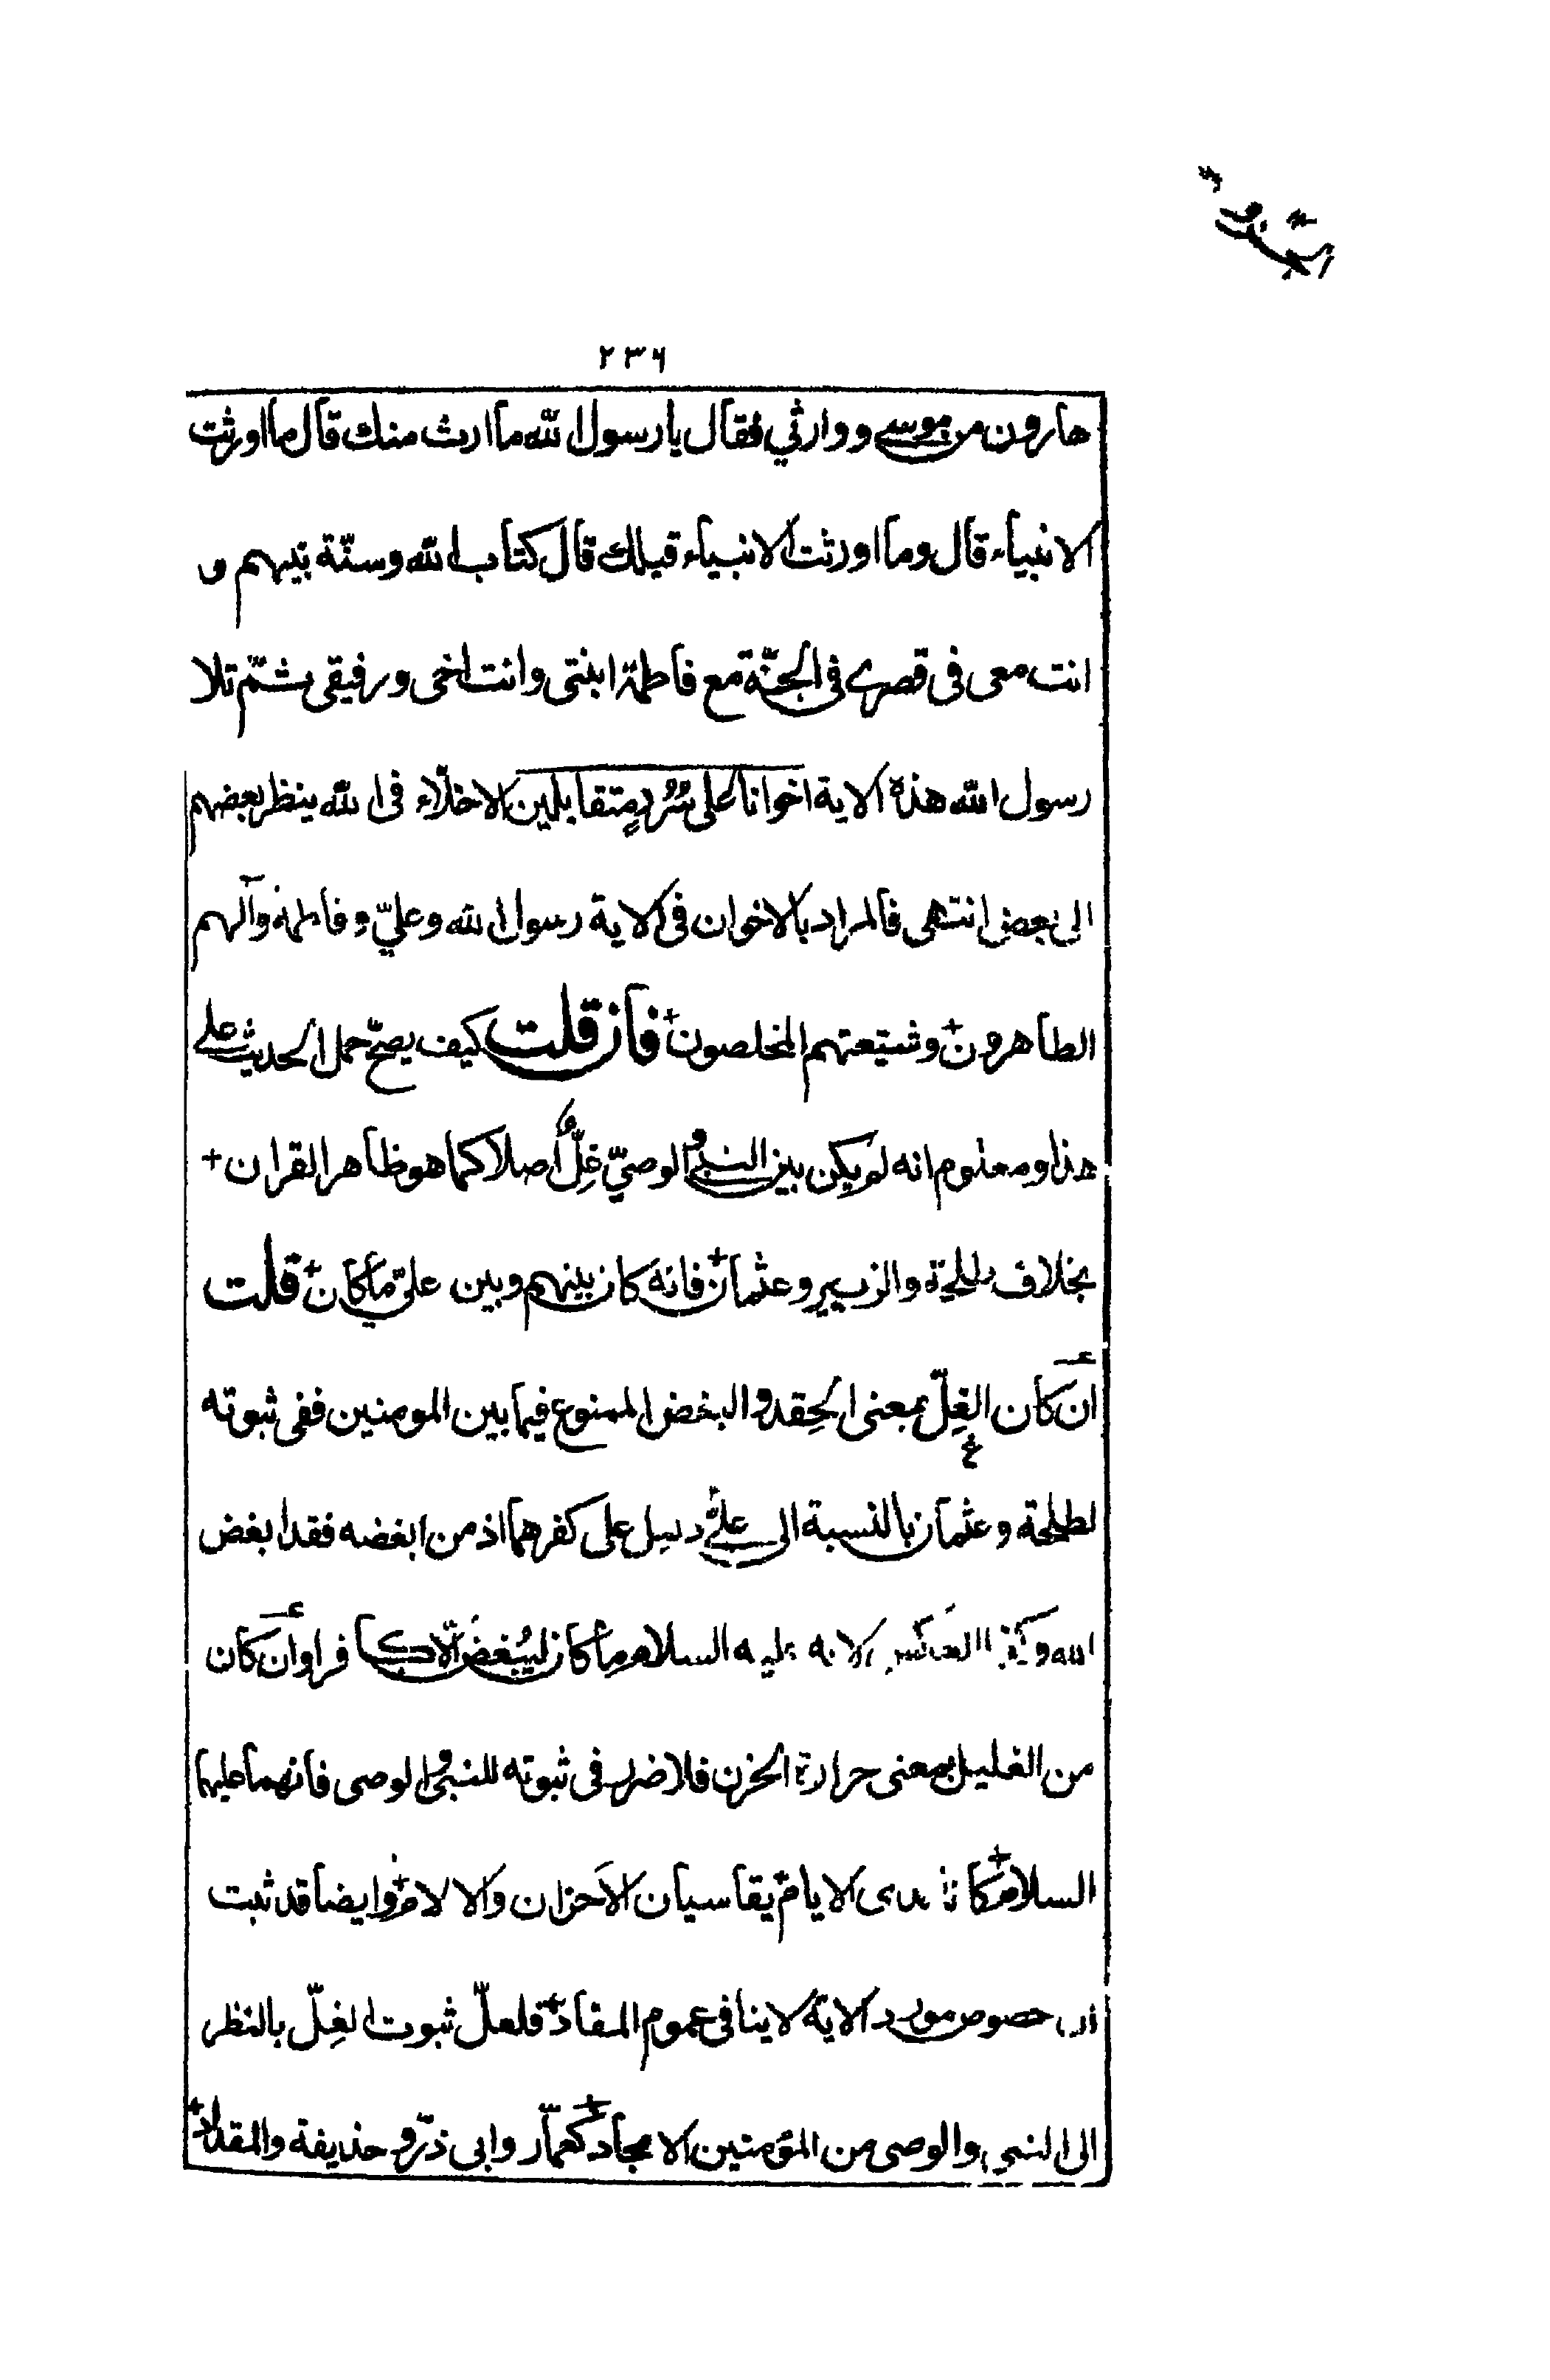 ٢٣٦
هارون من موسى ووارثي فقال يا رسول الله ما ارث منك قال ما اورثت
الانبياء قال وما اورثت الانبياء قبلك قال كتاب الله وسنّة نبيهم و
انت معى فى قصرى فى الجنّة مع فاطمة ابنتى وانت اخى ورفيقى ثمّ تلا
رسول الله هذه الاية اخوانا على سُرُرٍ متقابلين الاخلّاء فى الله ينظر بعضهم
الى بعض انتهى فالمراد بالاخوان فى الاية رسول الله وعليّ وفاطمة وآلهم
الطاهرون وشيعتهم المخلصون فان قلت كيف يصحّ حمل الحديث على
هذا ومعلوم انه لم يكن بين النبى والوصيّ غِلٌّ اصلا كما هو ظاهر القران
بخلاف طلحة والزبير وعثمان فانه كان بينهم وبين علىّ ما كان قلت
ان كان الغِلّ بمعنى الحِقد والبغض الممنوع فيما بين المومنين ففى ثبوته
لطلحة وعثمان بالنسبة الى علىّ دليل على كفرهما اذ من ابغضه فقد ابغض
الله لانه عليه السلام ما كان ليُبغضَ الّا كافرا وان كان
من الغليل بمعنى حرارة الحزن فلا ضرر فى ثبوته للنبى والوصى فانهما عليهما
السلام كانا مدى الايام يقاسيان الاحزان والالام وايضا قد ثبت
ان خصوص مورد الاية لا ينافى عموم المفاد فلعلّ ثبوت الغِلّ بالنظر
الى النبى والوصى من المؤمنين الامجاد كعمّار وابى ذرّ وحذيفة والمقداد